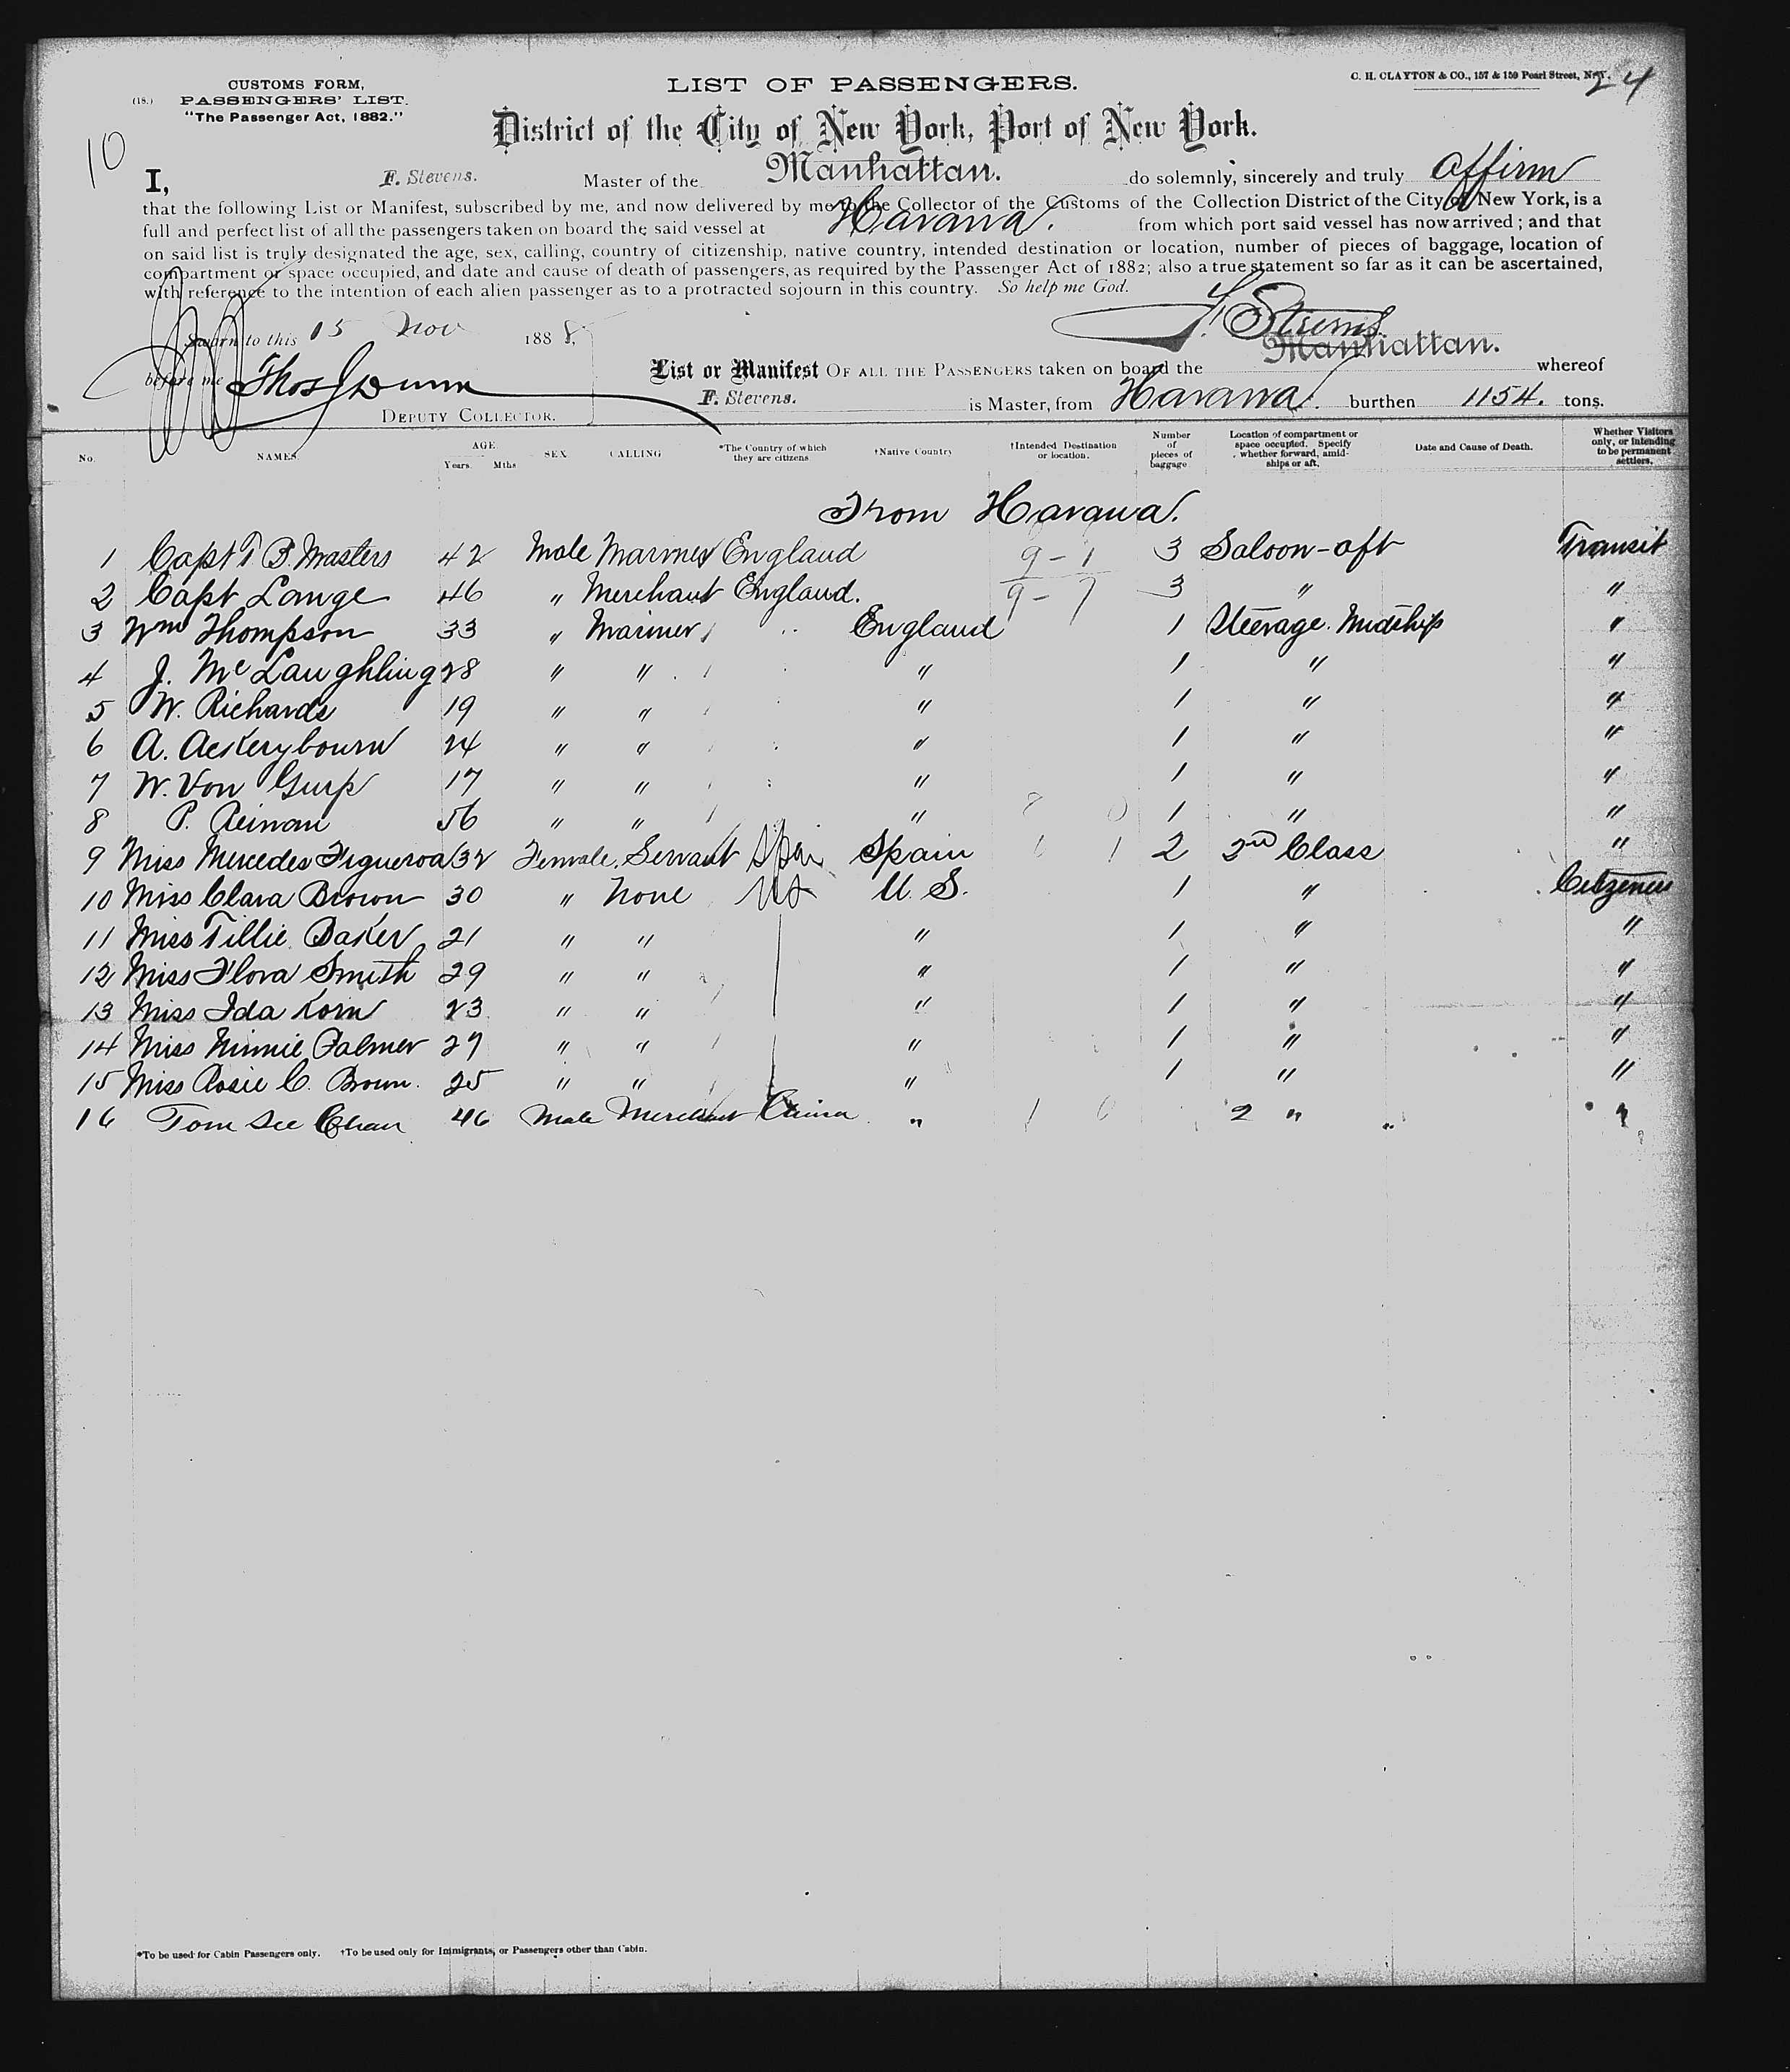 CUSTOMS FORM,
(18.) PASSENGERS' LIST.
"The Passenger Act, 1882."
LIST OF PASSENGERS.
C. H. CLAYTON & CO., 157 & 159 Pearl Street, N.Y.
24
10
District of the City of New York, Port of New York.
I, F. Stevens. Master of the Manhattan. do solemnly, sincerely and truly affirm
that the following List or Manifest, subscribed by me, and now delivered by me to the Collector of the Customs of the Collection District of the City of New York, is a
full and perfect list of all the passengers taken on board the said vessel at Havana. from which port said vessel has now arrived; and that
on said list is truly designated the age, sex, calling, country of citizenship, native country, intended destination or location, number of pieces of baggage, location of
compartment or space occupied, and date and cause of death of passengers, as required by the Passenger Act of 1882; also a true statement so far as it can be ascertained,
with reference to the intention of each alien passenger as to a protracted sojourn in this country. So help me God.
Sworn to this 15 Nov 1888,
F. Stevens
Manhattan.
before me Thos J Dunn
DEPUTY COLLECTOR.
List or Manifest OF ALL THE PASSENGERS taken on board the whereof
F. Stevens. is Master, from Havana. burthen 1154. tons.
No. NAMES AGE Years. Mths SEX CALLING *The Country of which they are citizens †Native Country †Intended Destination or location. Number of pieces of baggage Location of compartment or space occupied. Specify whether forward, amidships or aft. Date and Cause of Death. Whether Visitors only, or intending to be permanent settlers.
From Havana.
1 Capt T B. Masters 42 Male Mariner England 9-1 3 Saloon-aft Transit
2 Capt Lange 46 " Merchant England. 9-7 3 " "
3 Wm Thompson 33 " Mariner " England 1 Steerage. Midship "
4 J. McLaughling 28 " " " 1 " "
5 W. Richards 19 " " " 1 " "
6 A. Ackerybourn 24 " " " 1 " "
7 W. Von Gurp 17 " " " 1 " "
8 P. Reinan 56 " " " 1 " "
9 Miss Mercedes Figueroa 32 Female. Servant Spain Spain 2 2nd Class "
10 Miss Clara Brown 30 " None US U. S. 1 " Citzenes
11 Miss Tillie Baker 21 " " " 1 " "
12 Miss Flora Smith 29 " " " 1 " "
13 Miss Ida Korn 23 " " " 1 " "
14 Miss Minnie Palmer 27 " " " 1 " "
15 Miss Rosie C. Brown. 25 " " " 1 " "
16 Tom See Chan 46 Male Merchant China " 1 0 2 " "
*To be used for Cabin Passengers only. †To be used only for Immigrants, or Passengers other than Cabin.